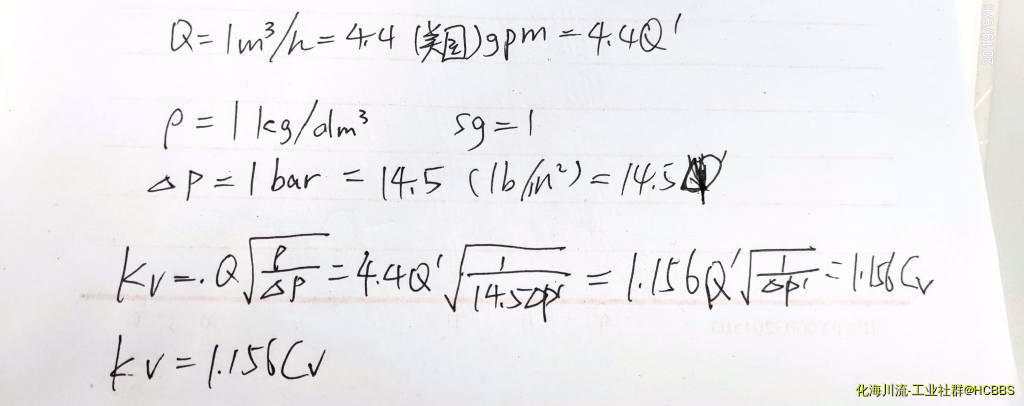 Q=1m³/h=4.4 (美国)gpm=4.4Q'
ρ=1kg/dm³ sg=1
ΔP=1bar=14.5 (lb/in²)=14.5
kv=.Q√(ρ/ΔP)=4.4Q'√(1/14.5Δp')=1.156Q'√(1/Δp')=1.156Cv
kv=1.156Cv
化海川流-工业社群@HCBBS